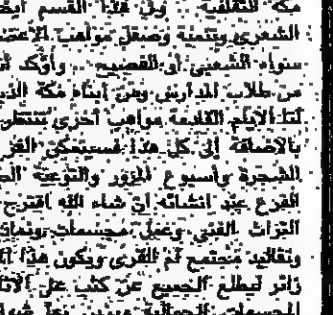 مكة للثقافة .. وفي هذا القسم
الشعري وتنمية وصقل مواهب
سواء الشعبي أو الفصيح .. وأؤكد
من طلاب المدارس ومن أبناء مكة
لنا الأيام القادمة مواهب أخرى ستظهر
بالإضافة إلى كل هذا فسيتمكن
الشجرة وأسبوع المرور والتوعية
الفرع عند انشائه ان شاء الله اقترح
التراث الفني وعمل مجسمات
وتقاليد مجتمع أم القرى ويكون هذا
زائر ليطلع الجميع عن كثب على
المجسمات الجمالية